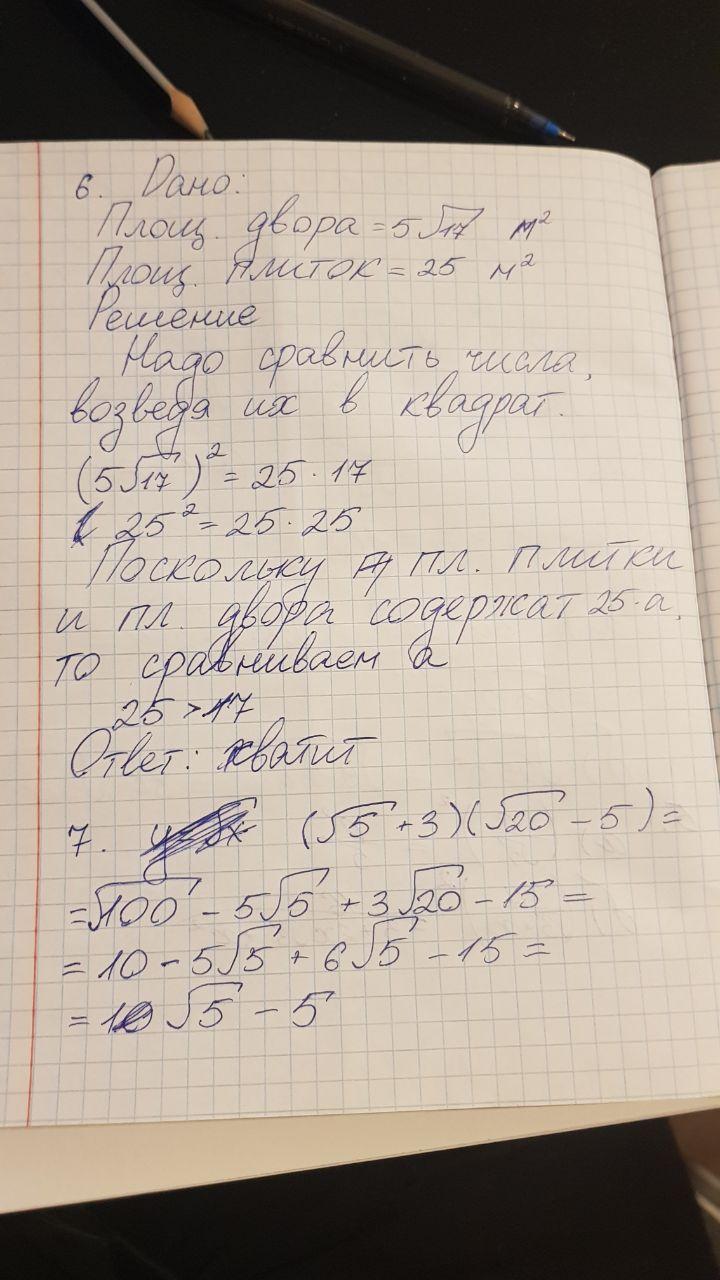 6. Дано:
Площ. двора = 5√17 м²
Площ. плиток = 25 м²
Решение
Надо сравнить числа,
возведя их в квадрат.
(5√17)² = 25 · 17
25² = 25 · 25
Поскольку пл. плитки
и пл. двора содержат 25·a,
то сравниваем a
25 > 17
Ответ: хватит
7. (√5 + 3)(√20 − 5) =
= √100 − 5√5 + 3√20 − 15 =
= 10 − 5√5 + 6√5 − 15 =
= √5 − 5